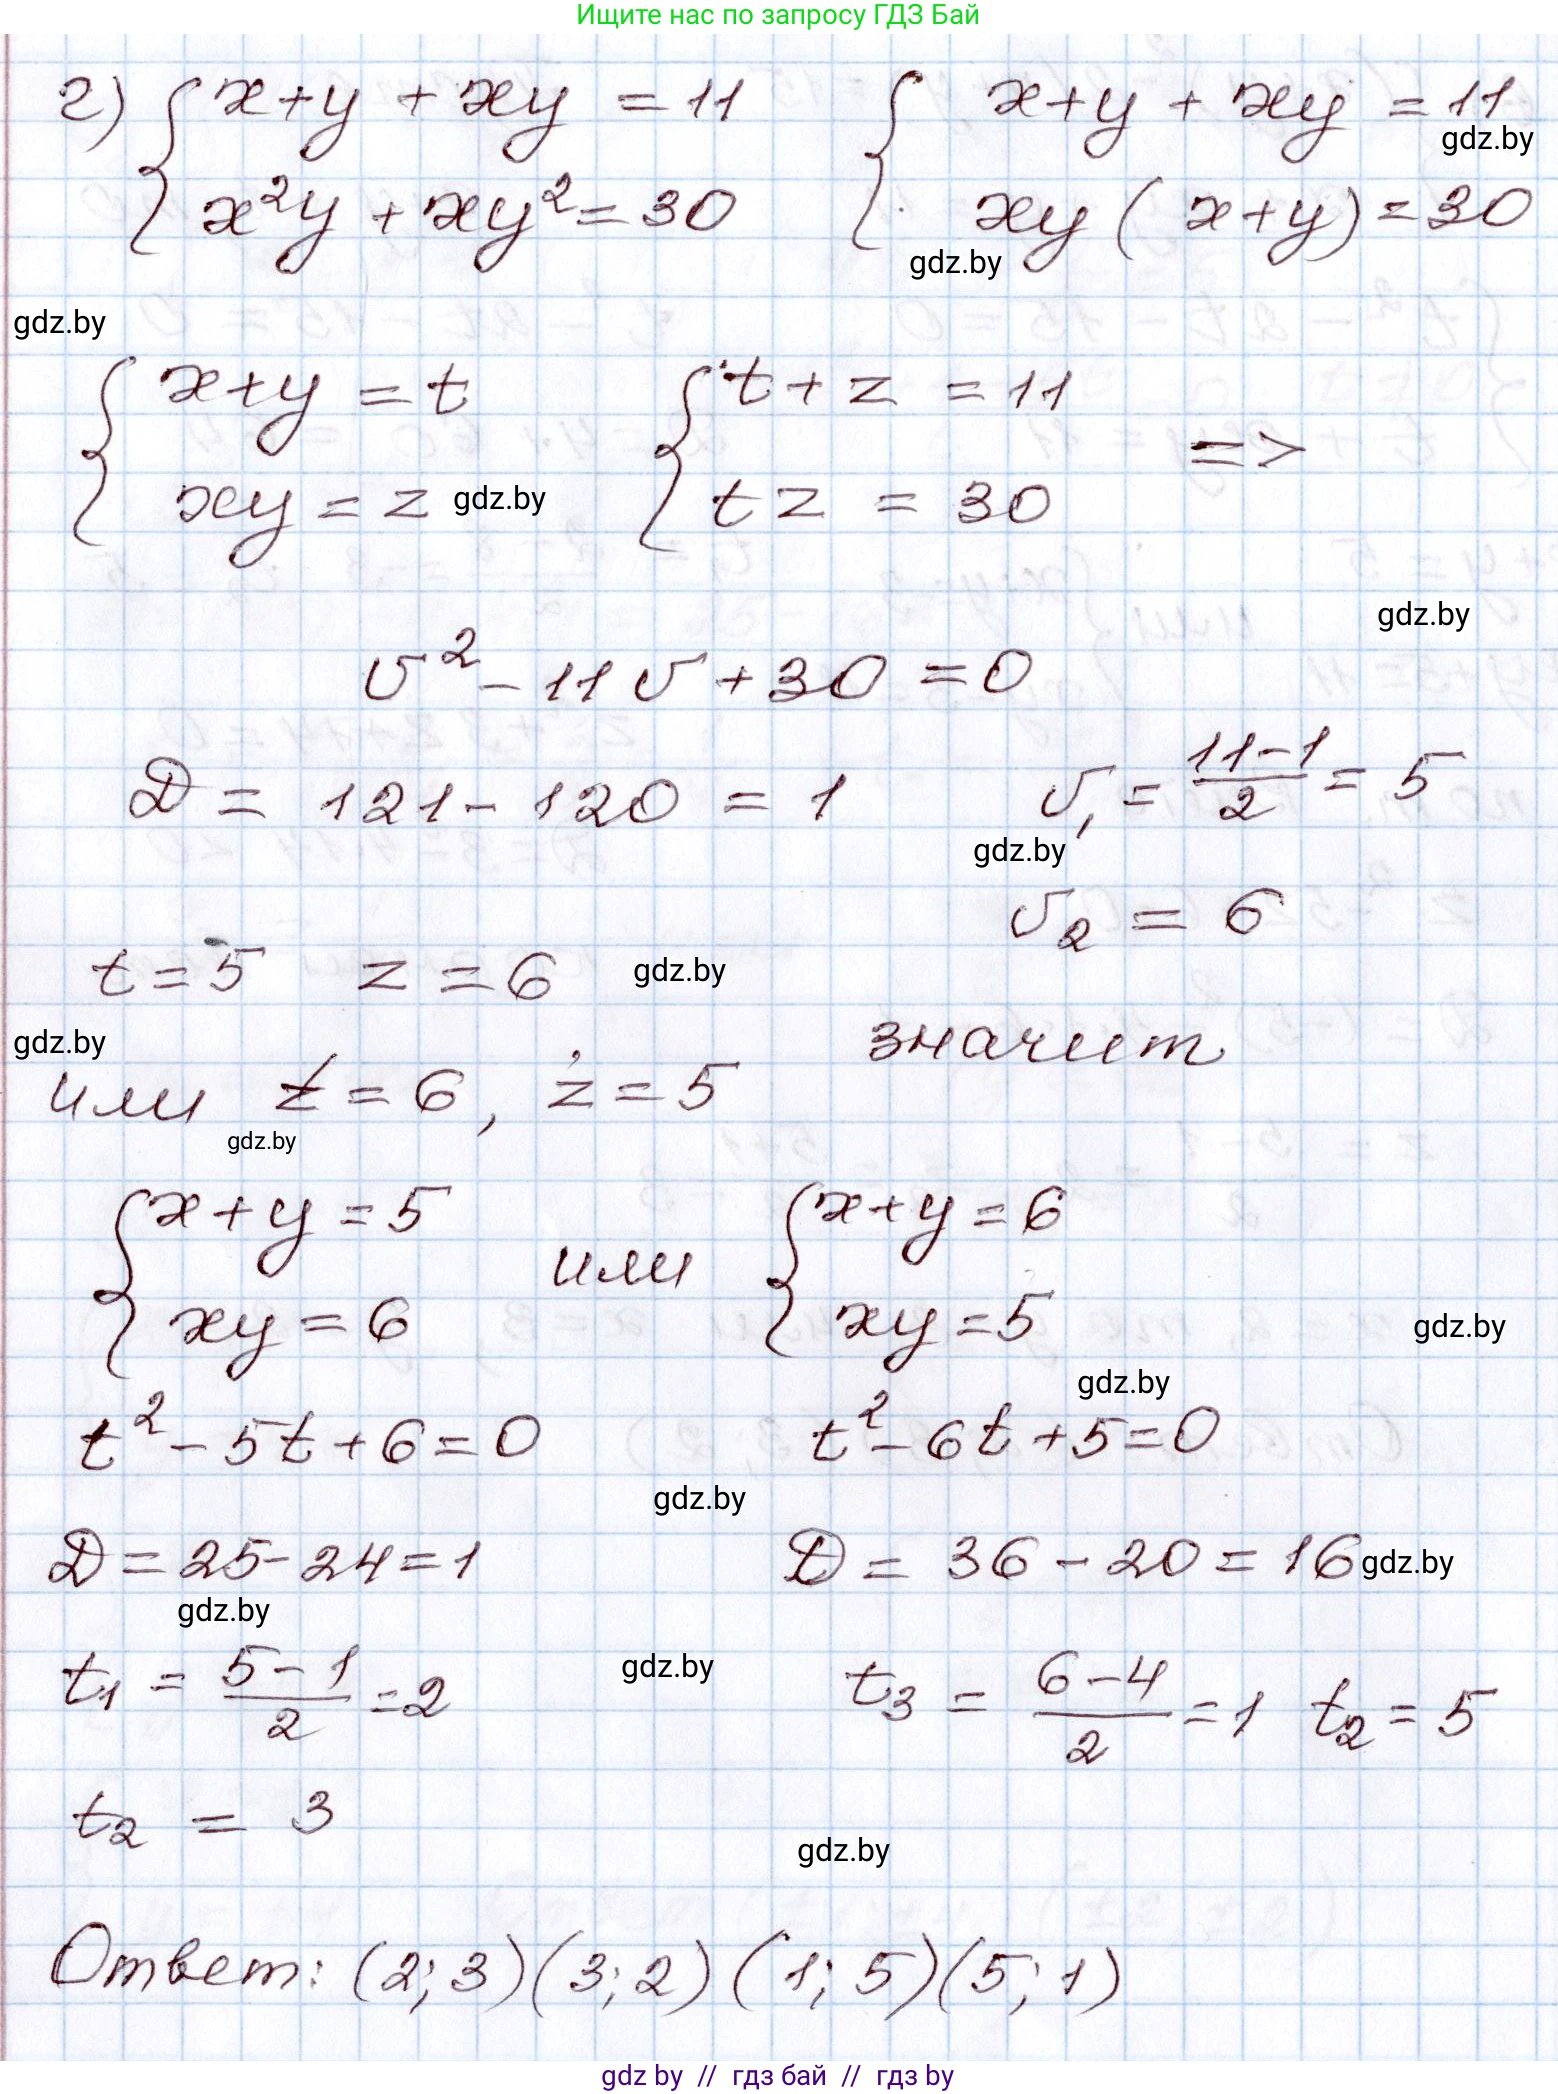 Ищите нас по запросу ГДЗ Бай
г) { x+y + xy = 11 { x+y + xy = 11
x²y + xy² = 30 xy ( x+y) = 30
gdz.by
gdz.by
gdz.by
{ x+y = t { t + z = 11 =>
xy = z tz = 30
gdz.by
gdz.by
v² - 11v + 30 = 0
D = 121 - 120 = 1 v₁ = (11-1)/2 = 5
gdz.by
v₂ = 6
t = 5 z = 6 gdz.by
gdz.by
значит
или t = 6, z = 5
gdz.by
{ x + y = 5 или { x+y = 6
xy = 6 xy = 5
gdz.by
gdz.by
t² - 5t + 6 = 0 t² - 6t + 5 = 0
gdz.by
D = 25 - 24 = 1 D = 36 - 20 = 16
gdz.by
gdz.by
t₁ = (5-1)/2 = 2 t₃ = (6-4)/2 = 1 t₂ = 5
gdz.by
t₂ = 3
gdz.by
Ответ: (2; 3) (3; 2) (1; 5) (5; 1)
gdz.by // гдз бай // гдз by